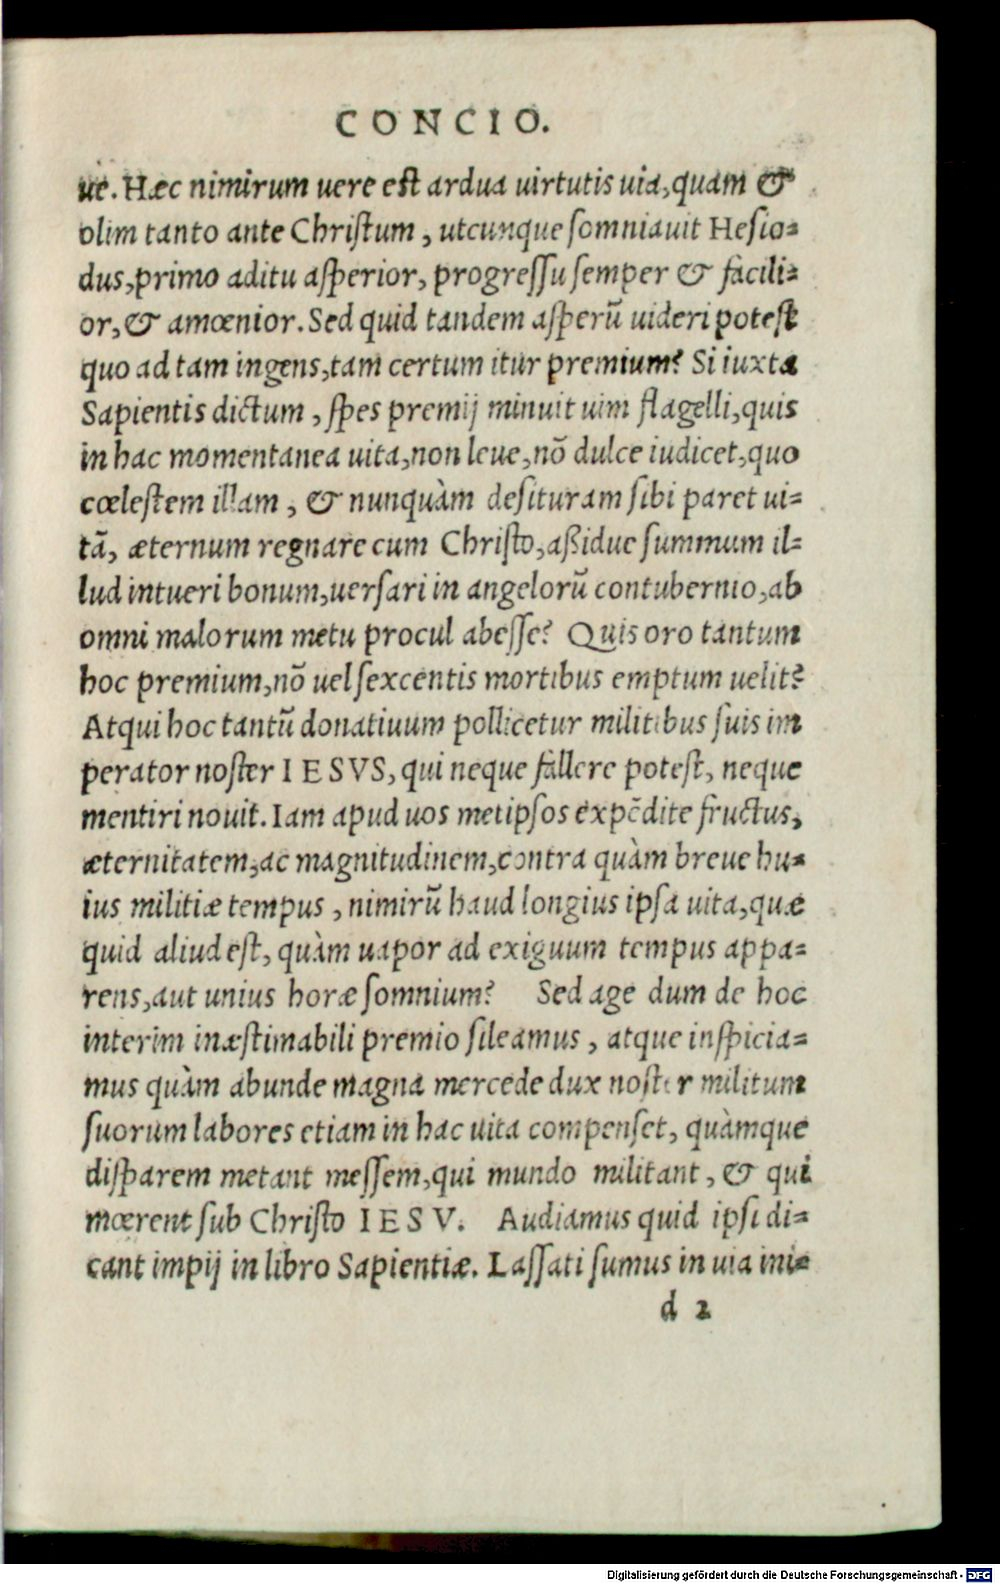 CONCIO.
ue. Hæc nimirum uere est ardua uirtutis uia, quam &
olim tanto ante Christum, utcunque somniauit Hesio-
dus, primo aditu asperior, progressu semper & facili-
or, & amœnior. Sed quid tandem asperū uideri potest
quo ad tam ingens, tam certum itur premium? Si iuxta
Sapientis dictum, spes premij minuit uim flagelli, quis
in hac momentanea uita, non leue, nō dulce iudicet, quo
cœlestem illam, & nunquàm desituram sibi paret ui-
tā, æternum regnare cum Christo, aßidue summum il-
lud intueri bonum, uersari in angelorū contubernio, ab
omni malorum metu procul abesse? Quis oro tantum
hoc premium, nō uel sexcentis mortibus emptum uelit?
Atqui hoc tantū donatiuum pollicetur militibus suis im
perator noster IESVS, qui neque fallere potest, neque
mentiri nouit. Iam apud uos metipsos expēdite fructus,
æternitatem, ac magnitudinem, contra quàm breue hu-
ius militiæ tempus, nimirū haud longius ipsa uita, quæ
quid aliud est, quàm uapor ad exiguum tempus appa-
rens, aut unius horæ somnium? Sed age dum de hoc
interim inæstimabili premio sileamus, atque inspicia-
mus quàm abunde magna mercede dux noster militum
suorum labores etiam in hac uita compenset, quàmque
disparem metant messem, qui mundo militant, & qui
mœrent sub Christo IESV. Audiamus quid ipsi di-
cant impij in libro Sapientiæ. Lassati sumus in uia ini-
d 2
Digitalisierung gefördert durch die Deutsche Forschungsgemeinschaft - DFG